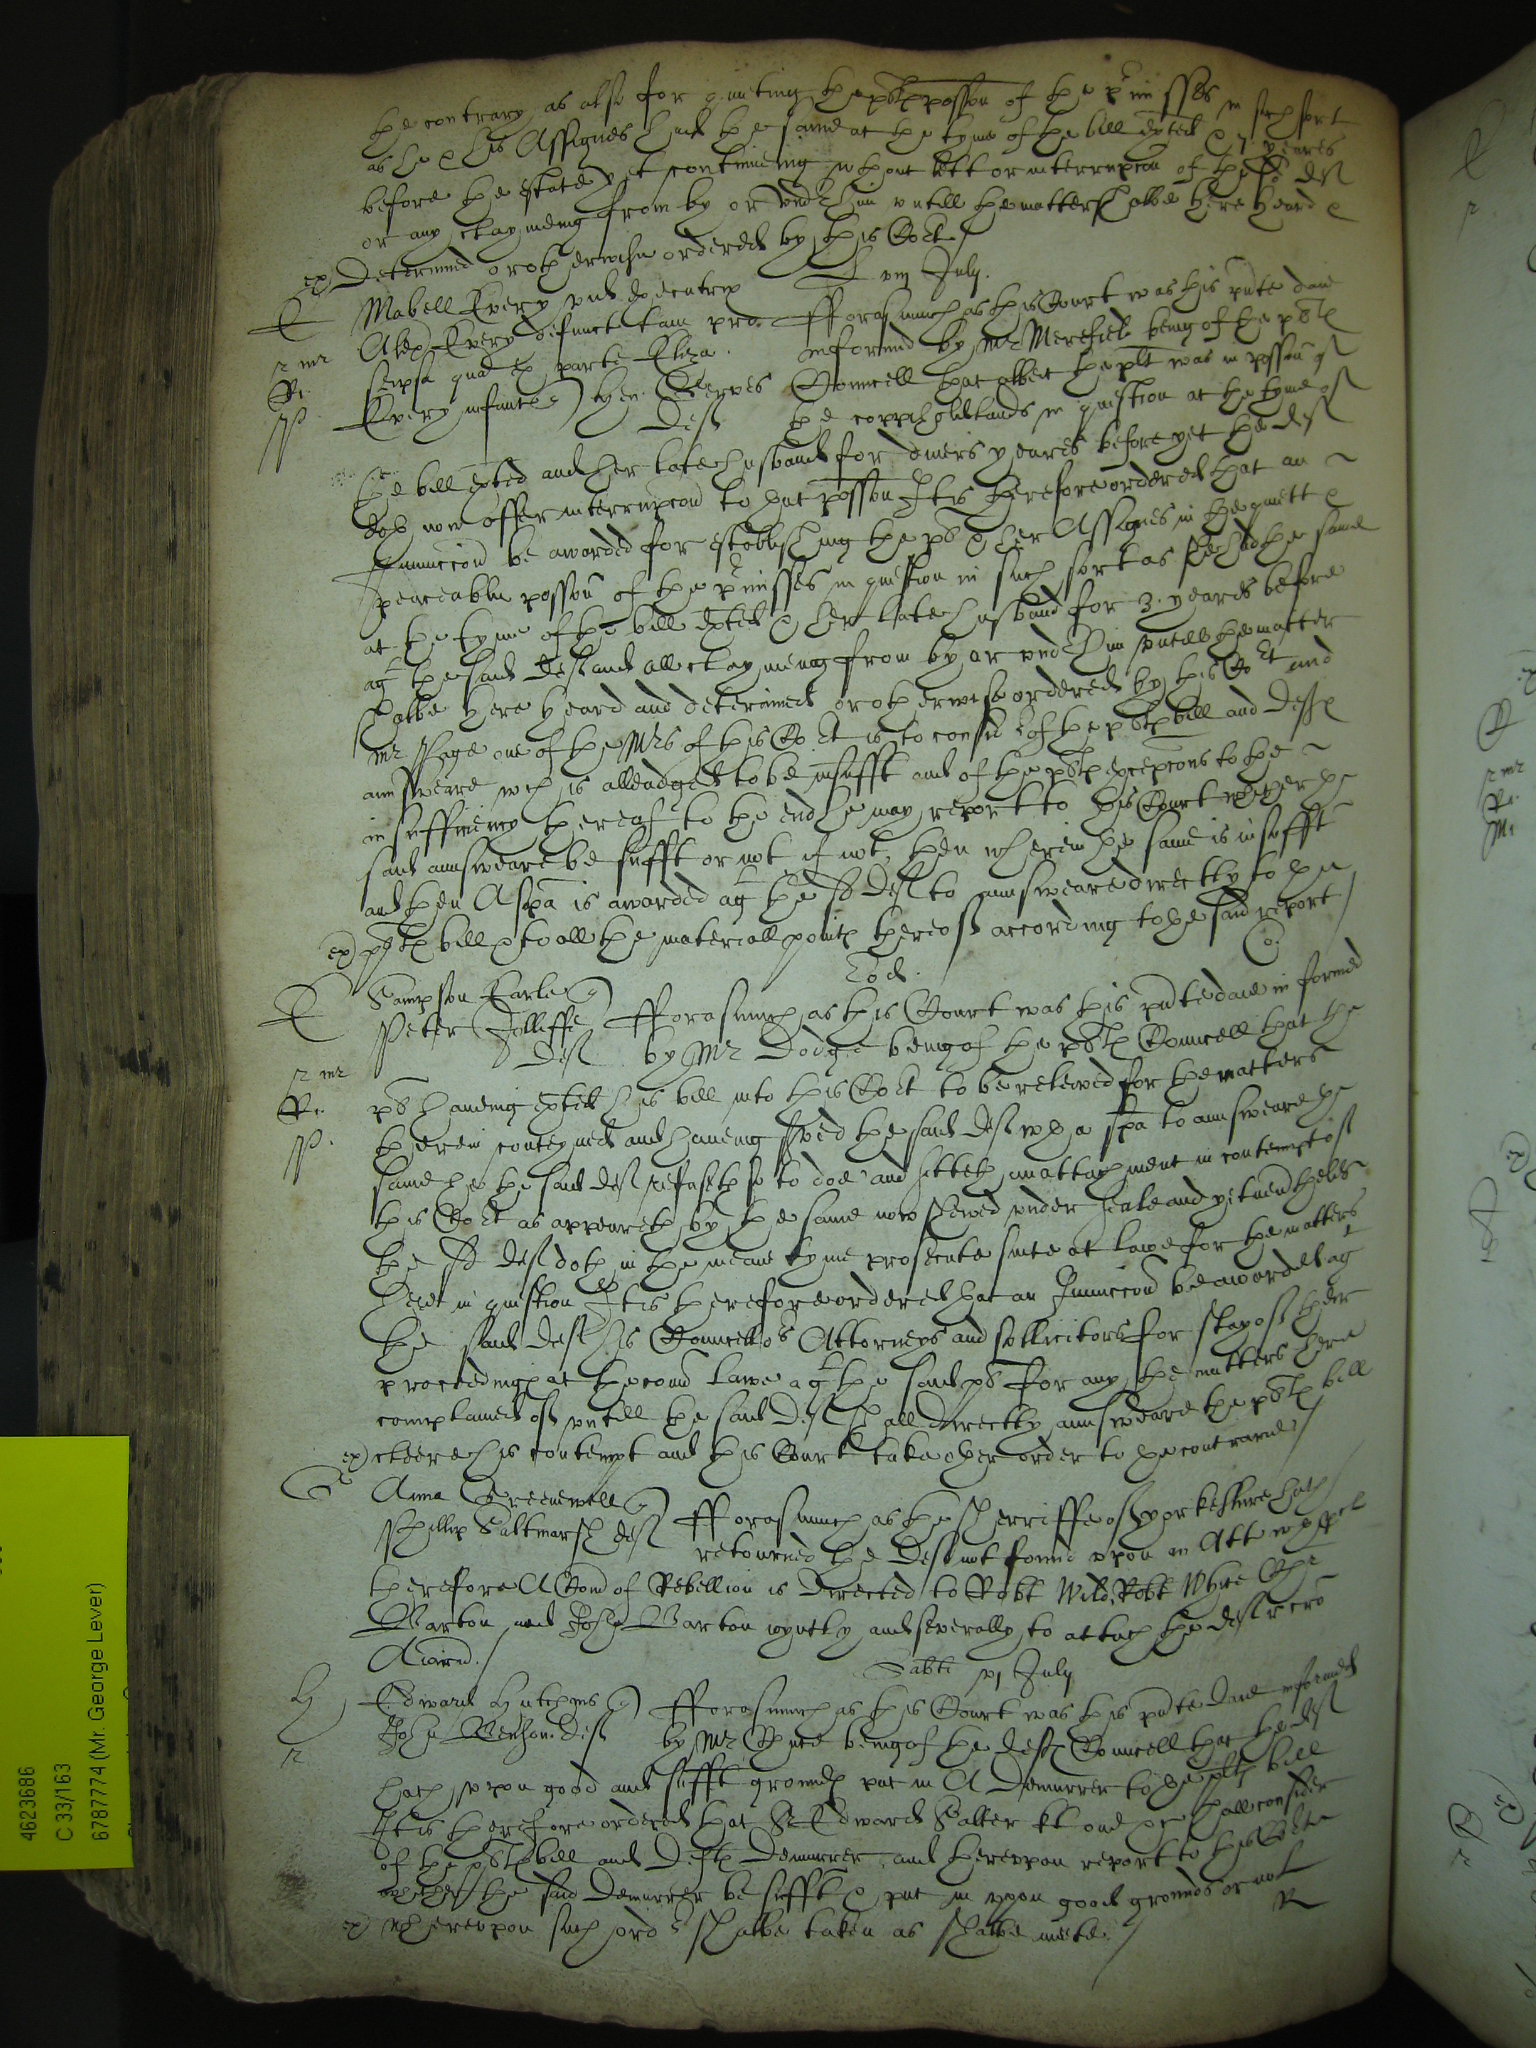 the contrary as also for quieting the plts possion of the p'misses in such sort
as he & his Assignes had the same at the tyme of the bill exhited & 7 yeares
before the estate yet continueing without lett or interrupcon of the sd deft
or any claymeing from by or vnder him vntill the matter shalbe here heard &
ex) determined or otherwise ordered by this Cort /
vii July.
Mabell Every vid executrix
Alex Every defuncte tam pro
seipsa quam ex parte Eliza.
Every infante) Hen: deft
Fforasmuch as this Court was this pnte daie
informed by Mr Merefield being of the plts
Councell that albeit the plt was in possion of
the coppiehold lands in question at the tyme of
the bill exhited and her late husband for divers yeares before yet the deft
doth now offer interrupcon to that possion It is therefore ordered that an
Iniunccon be awarded for establishing the plt & her Assignes in the quiett &
peaceable possion of the p'misses in question in such sort as she had the same
at the tyme of the bill exhited & her late husband for 3. yeares before
agt the said deft and all claymeing from by or vnder him vntill the matter
shalbe here heard and determined or otherwise ordered by this Cort and
Mr Page one of the Mrs of this Cort is to consider of the plts bill and defts
answeare wch is alleadged to be insuffit and of the plts excepcons to the
insufficiency thereof to the end he may report to this Court whether the
said answeare be suffit or not if not, then wherein the same is insuffit
and then A spa is awarded agt the sd deft to answeare directly to the
ex) plts bill & to all the materiall points thereof according to the said report /
Eod.
Sampson Earle)
Peter Jolliffe
deft
Fforasmuch as this Court was this pnte daie informed
by Mr Dodge being of the plts Councell that the
plt haveing exhited his bill into this Cort to be releived for the matters
therein conteyned and haveing served the said deft wth a spa to answeare the
same he the said deft refuseth so to doe and sitteth an attachment in contempt of
this Cort as appeareth by the same now shewed vnder seale and yet nevertheles
the sd deft doth in the meane tyme prosecute suite at lawe for the matters
here in question It is therefore ordered that an Iniunccon be awarded agt
the said deft his Councellors Attorneys and sollicitors for stay of their
proceedings at the comon lawe agt the said plt for any the matters here
complained of vntill the said deft shall directly answeare the plts bill
ex) cleere his contempt and this Court take other order to the contrarie /
Anna Greenewell)
Phillip Saltmarsh deft
Fforasmuch as the sherriffe of yorkeshire hath
retourned the deft not found vpon an Att wth
therefore A Com of Rebellion is directed to Robt Wild, Robt White
Barton and John Barton ioyntly and severally to attach the deft
Sabti xi July
Edward Hutchins)
John deft
Fforasmuch as this Court was this pnte daie informed
by Mr being of the defts Councell that the deft
hath vpon good and suffit grounds put in A Demurrer to the plts bill
It is therefore ordered that Sr Edward Salter kt one &c shall consider
of the plts bill and defts Demurrer and therevpon report to this Cort
whether the said Demurrer be suffit & put in vpon good grounds or not
ex) wherevpon such order shalbe taken as shalbe meete /
4623686
C 33/163
6787774 (Mr. George Lever)